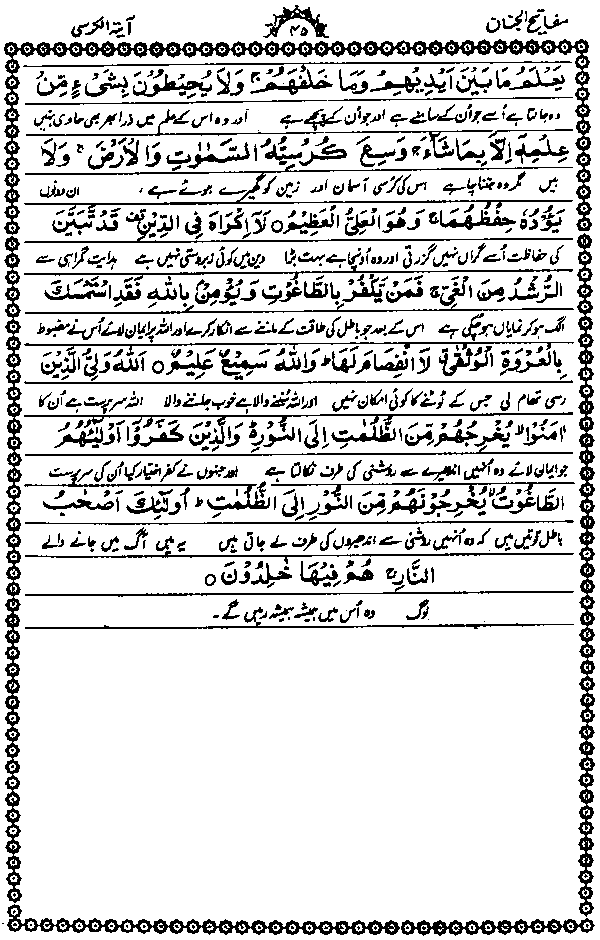 مفاتیح الجنان ۴۵ آیۃ الکرسی
يَعْلَمُ مَا بَيْنَ اَيْدِيْهِمْ وَمَا خَلْفَهُمْ ۚ وَلَا يُحِيْطُوْنَ بِشَىْءٍ مِّنْ
وہ جانتا ہے اُسے جو اُن کے سامنے ہے اور جو اُن کے پیچھے ہے اور وہ اس کے علم میں ذرا بھر بھی حاوی نہیں
عِلْمِهٖۤ اِلَّا بِمَا شَآءَ ۚ وَسِعَ كُرْسِيُّهُ السَّمٰوٰتِ وَالْاَرْضَ ۚ وَلَا
ہیں مگر وہ جتنا چاہے اس کی کرسی آسمان اور زمین کو گھیرے ہوئے ہے، ان دونوں
يَـُٔوْدُهٗ حِفْظُهُمَا ۚ وَهُوَ الْعَلِىُّ الْعَظِيْمُ ○ لَاۤ اِكْرَاهَ فِى الدِّيْنِ ۙ قَدْ تَّبَيَّنَ
کی حفاظت اُسے گراں نہیں گزرتی اور وہ اُونچا ہے بہت بڑا دین میں کوئی زبردستی نہیں ہے ہدایت گمراہی سے
الرُّشْدُ مِنَ الْغَىِّ ۚ فَمَنْ يَّكْفُرْ بِالطَّاغُوْتِ وَيُؤْمِنْۢ بِاللّٰهِ فَقَدِ اسْتَمْسَكَ
الگ ہو کر نمایاں ہو چکی ہے اس کے بعد جو باطل کی طاقت کے ماننے سے انکار کرے اور اللہ پر ایمان لائے اُس نے مضبوط
بِالْعُرْوَةِ الْوُثْقٰى ۙ لَا انْفِصَامَ لَهَا ؕ وَاللّٰهُ سَمِيْعٌ عَلِيْمٌ ○ اَللّٰهُ وَلِىُّ الَّذِيْنَ
رسی تھام لی جس کے ٹوٹنے کا کوئی امکان نہیں اور اللہ سننے والا ہے خوب جاننے والا اللہ سرپرست ہے اُن کا
اٰمَنُوْا ۙ يُخْرِجُهُمْ مِّنَ الظُّلُمٰتِ اِلَى النُّوْرِ ؕ وَالَّذِيْنَ كَفَرُوْۤا اَوْلِيٰٓـُٔهُمُ
جو ایمان لائے وہ اُنہیں اندھیرے سے روشنی کی طرف نکالتا ہے اور جنہوں نے کفر اختیار کیا اُن کی سرپرست
الطَّاغُوْتُ ۙ يُخْرِجُوْنَهُمْ مِّنَ النُّوْرِ اِلَى الظُّلُمٰتِ ؕ اُولٰٓئِكَ اَصْحٰبُ
باطل قوتیں ہیں کہ وہ اُنہیں روشنی سے اندھیروں کی طرف لے جاتی ہیں یہ ہیں آگ میں جانے والے
النَّارِ ۚ هُمْ فِيْهَا خٰلِدُوْنَ ○
لوگ وہ اُس میں ہمیشہ ہمیشہ رہیں گے۔